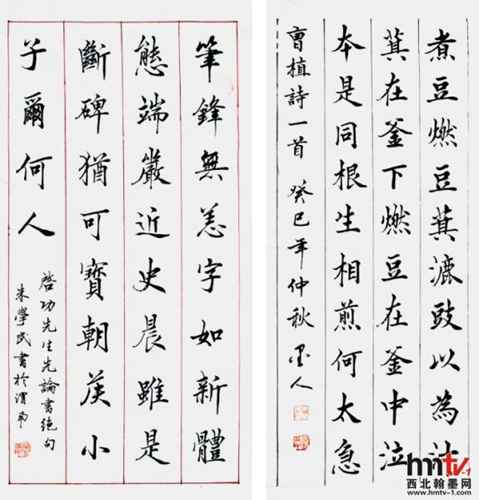 煮豆燃豆萁漉豉以為汁
萁在釜下燃豆在釜中泣
本是同根生相煎何太急
曹植詩一首 癸巳年仲秋 墨人
筆鋒無恙字如新體
態端嚴近史晨雖是
斷碑猶可寶朝矦小
子爾何人
啓功先生先論書絕句
朱學民書於渭南
hmtv-1
西北翰墨网
www.hmtv-1.com